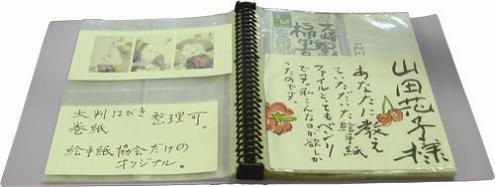 大判はがき 整理可。
巻紙
絵手紙協会だけの
オリジナル。
山田花子様
あなたに教え
ていただいた絵手紙
ファイルとってもベンリ
です。私こんなのが欲しか
ったのです。